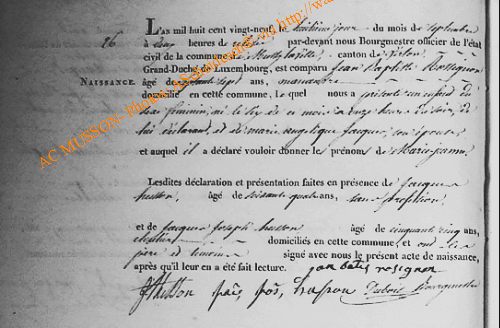 L'an mil huit cent vingt-neuf, le huitième jour du mois de septembre
26 à heures de par-devant nous Bourgmestre officier de l'état
civil de la commune de Mussy la ville, canton de Virton,
Grand-Duché de Luxembourg, est comparu Jean Baptiste Rossignon
NAISSANCE. âgé de ans, manœuvre
domicilié en cette commune, lequel nous a présenté un enfant du
sexe féminin, né le de ce mois à onze heures du soir, de
lui déclarant, et de marie angelique jacques, son épouse
et auquel il a déclaré vouloir donner les prénoms de Marie jeanne.
Lesdites déclaration et présentation faites en présence de Jacques
husson, âgé de soixante quatre ans, sans profession,
et de jacques joseph husson âgé de cinquante cinq ans,
domiciliés en cette commune, et ont les
père et témoins signé avec nous le présent acte de naissance,
après qu'il leur en a été fait lecture. jan batis rosignon
husson Dubois Bourgmestre
AC MUSSON- Photos http://ww